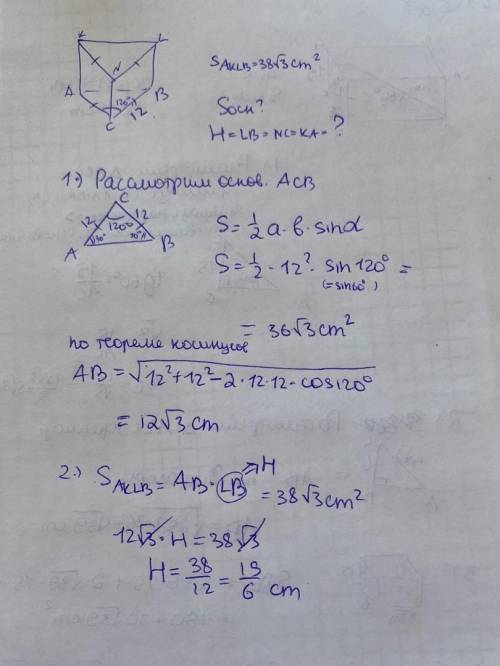 K L
N
A B
120°
C 12
S_{AKLB} = 38√3 cm²
Sосн?
H = LB = NC = KA = ?
1.) Рассмотрим основ. ACB
C
12 12
120°
A 30° 30° B
S = 1/2 a · b · sinα
S = 1/2 · 12² · sin 120° =
(= sin60°)
= 36√3 cm²
по теореме косинусов
AB = √(12² + 12² - 2 · 12 · 12 · cos120°)
= 12√3 cm
2.) S_{AKLB} = AB · LB = 38√3 cm²
H
12√3 · H = 38√3
H = 38/12 = 19/6 cm